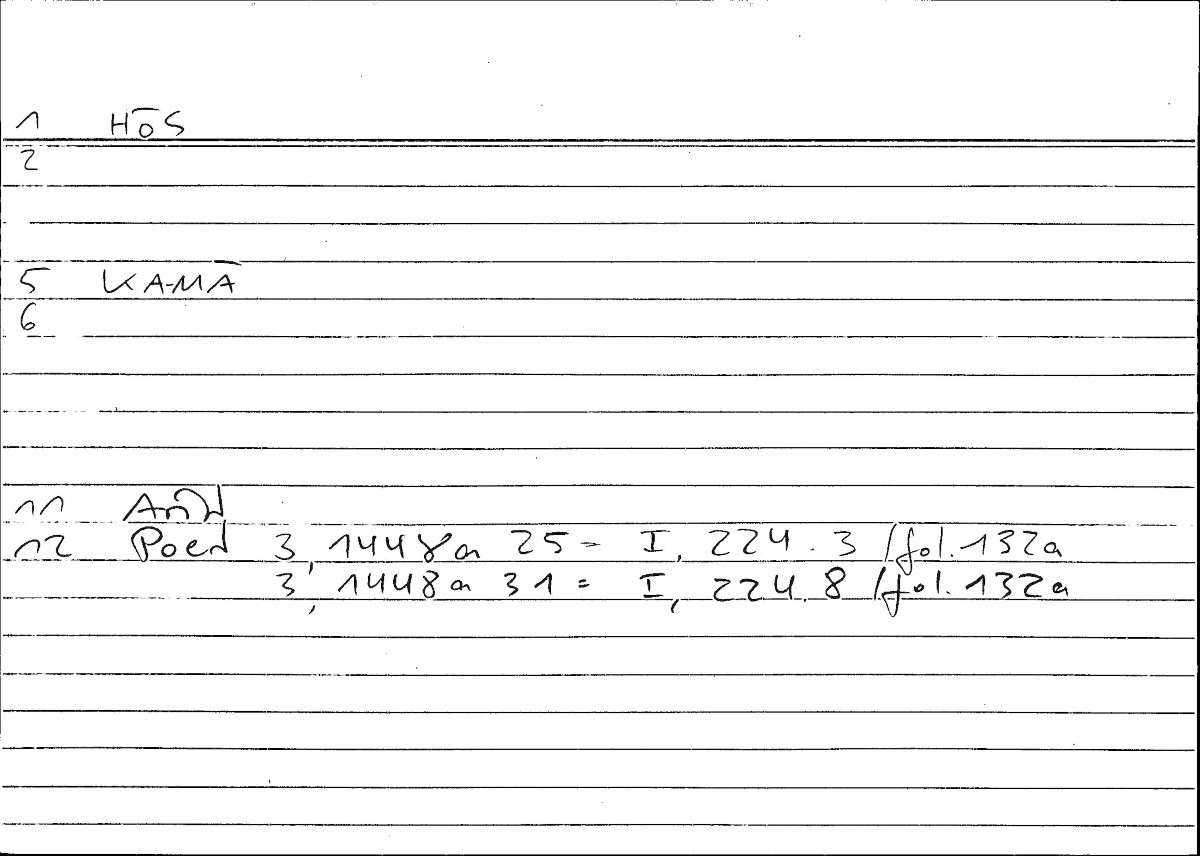 1 HŌS
2
5 KAMĀ
6
11
12 Poet 3, 1448a 25 = I, 224.3 / fol. 132a
3, 1448a 31 = I, 224.8 / fol. 132a